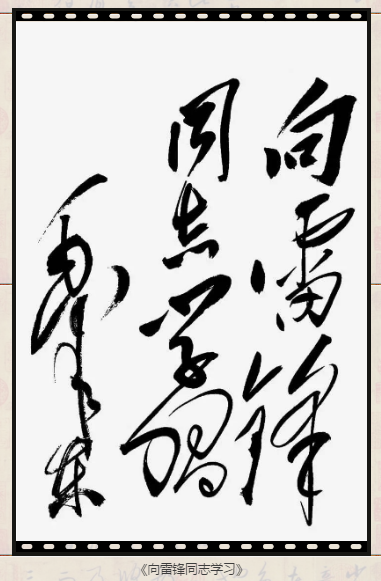 向雷锋
同志学习
毛泽东
《向雷锋同志学习》